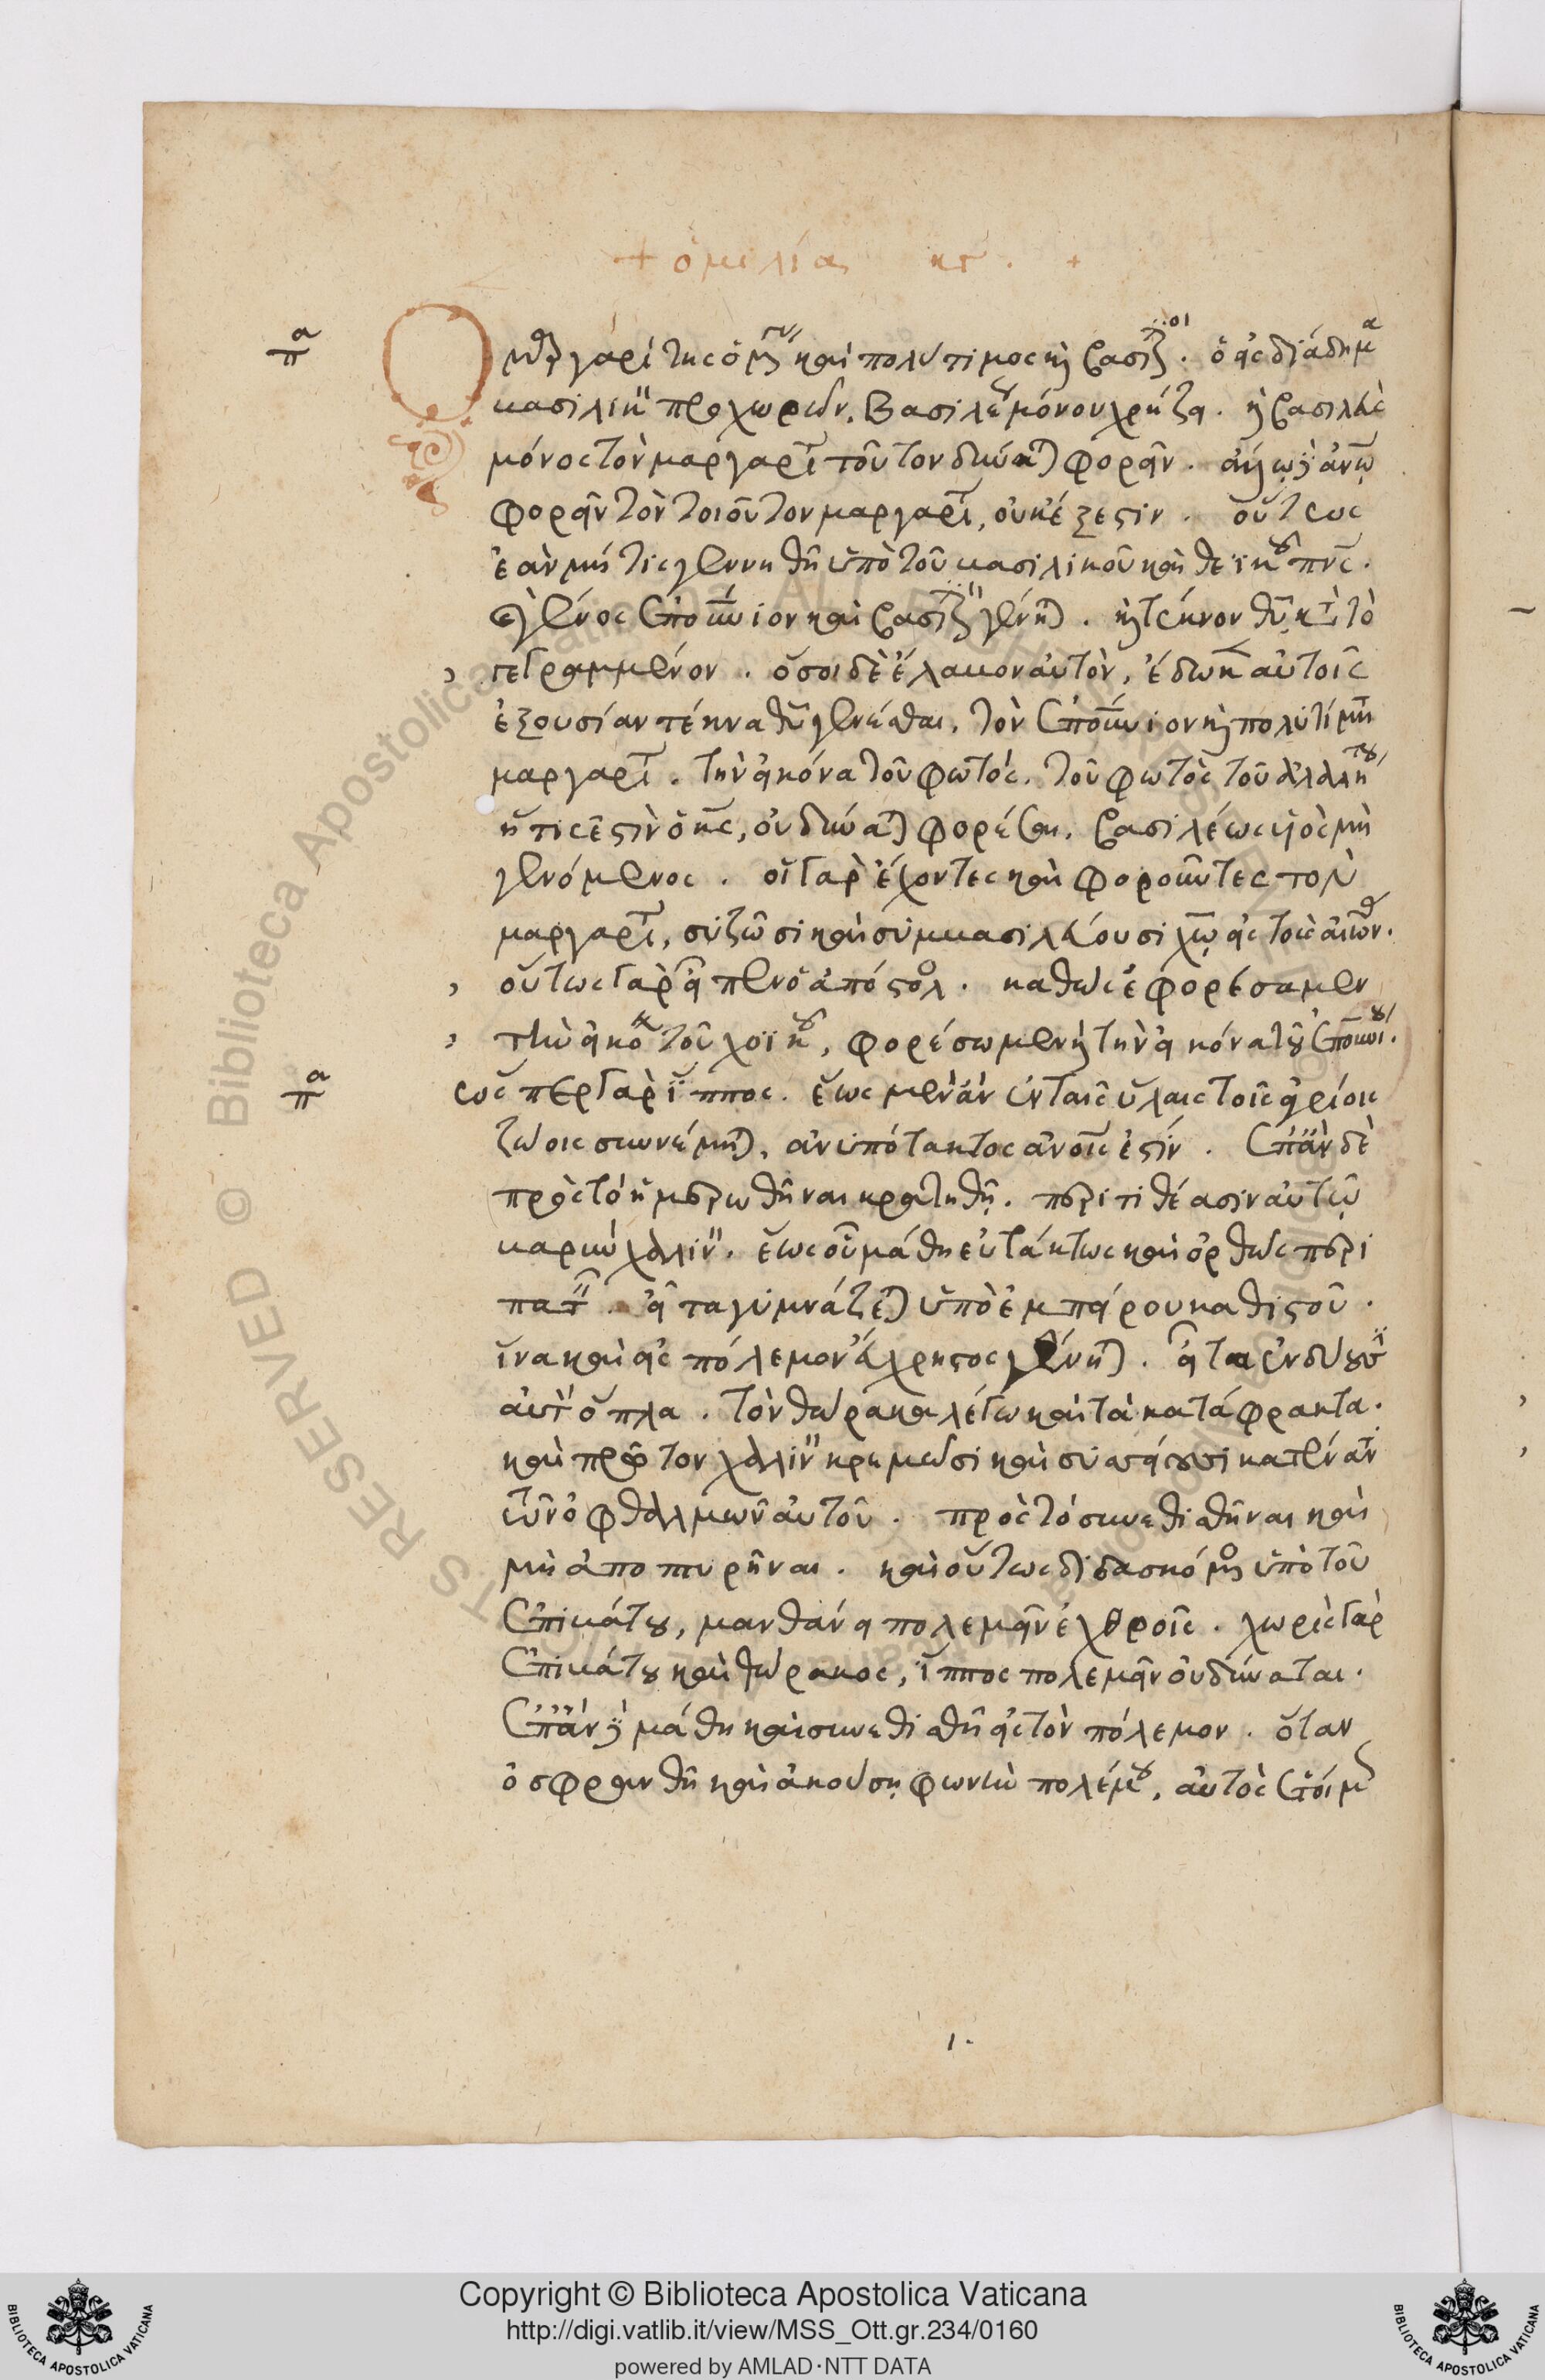 + ὁμιλία κγ. +
Ὁ μαργαρίτης ὁ μέγας καὶ πολύτιμος καὶ βασιλικὸς. ὁ εἰς διάδημα
βασιλικὸν προχωρῶν. Βασιλεῖ μόνου χρήζει. καὶ βασιλεὺς
μόνος τὸν μαργαρίτην τοῦτον δύναται φορεῖν. ἄλλῳ δὲ ἀνθρώπῳ
φορεῖν τὸν τοιοῦτον μαργαρίτην, οὐκ ἔξεστιν. οὕτως
ἐὰν μή τις γεννηθῇ ὑπὸ τοῦ βασιλικοῦ καὶ θεϊκοῦ πνεύματος.
γένος ἐπουράνιον καὶ βασιλικὸν γένηται. καὶ τέκνον θεοῦ κατὰ τὸ
γεγραμμένον. ὅσοι δὲ ἔλαβον αὐτὸν, ἔδωκεν αὐτοῖς
ἐξουσίαν τέκνα θεοῦ γενέσθαι, τὸν ἐπουράνιον καὶ πολύτιμον
μαργαρίτην. τὴν εἰκόνα τοῦ φωτός. τοῦ φωτὸς τοῦ ἀλαλήτου
ἥτις ἐστὶν ὁ κύριος, οὐ δύναται φορέσαι. βασιλέως υἱὸς μὴ
γενόμενος. οἱ γὰρ ἔχοντες καὶ φοροῦντες τὸν
μαργαρίτην, συζῶσι καὶ συμβασιλεύουσι χριστῷ εἰς τοὺς αἰῶνας.
οὕτως γὰρ εἶπεν ὁ ἀπόστολος. καθὼς ἐφορέσαμεν
τὴν εἰκόνα τοῦ χοϊκοῦ, φορέσωμεν καὶ τὴν εἰκόνα τοῦ ἐπουρανίου.
ὥσπερ γὰρ ἵππος. ἕως μὲν ἂν ἐν ταῖς ὕλαις τοῖς ἀγρίοις
ζώοις συννέμηται, ἀνυπότακτος ἀνθρώποις ἐστίν. ἐπὰν δὲ
πρὸς τὸ ἡμερωθῆναι κρατηθῇ. περιτιθέασιν αὐτῷ
βαρὺν χαλινὸν. ἕως οὗ μάθῃ εὐτάκτως καὶ ὀρθῶς περι
πατεῖν. εἶτα γυμνάζεται ὑπὸ ἐμπείρου καθιστοῦ.
ἵνα καὶ εἰς πόλεμον εὔχρηστος γένηται. εἶτα ἐνδύουσιν
αὐτὸν ὅπλα. τὸν θώρακα λέγω καὶ τὰ κατάφρακτα.
καὶ πρῶτον χαλινὸν κρεμῶσι καὶ συσσείουσι κατέναντι
τῶν ὀφθαλμῶν αὐτοῦ. πρὸς τὸ συνεθισθῆναι καὶ
μὴ ἀποπτυρῆναι. καὶ οὕτως διδασκόμενος ὑπὸ τοῦ
ἐπιβάτου, μανθάνει πολεμεῖν ἐχθροῖς. χωρὶς γὰρ
ἐπιβάτου καὶ θώρακος, ἵππος πολεμεῖν οὐ δύναται.
ἐπὰν δὲ μάθῃ καὶ συνεθισθῇ εἰς τὸν πόλεμον. ὅταν
ὀσφρανθῇ καὶ ἀκούσῃ φωνὴν πολέμου, αὐτὸς ἑτοίμως
Copyright © Biblioteca Apostolica Vaticana
http://digi.vatlib.it/view/MSS_Ott.gr.234/0160
powered by AMLAD·NTT DATA